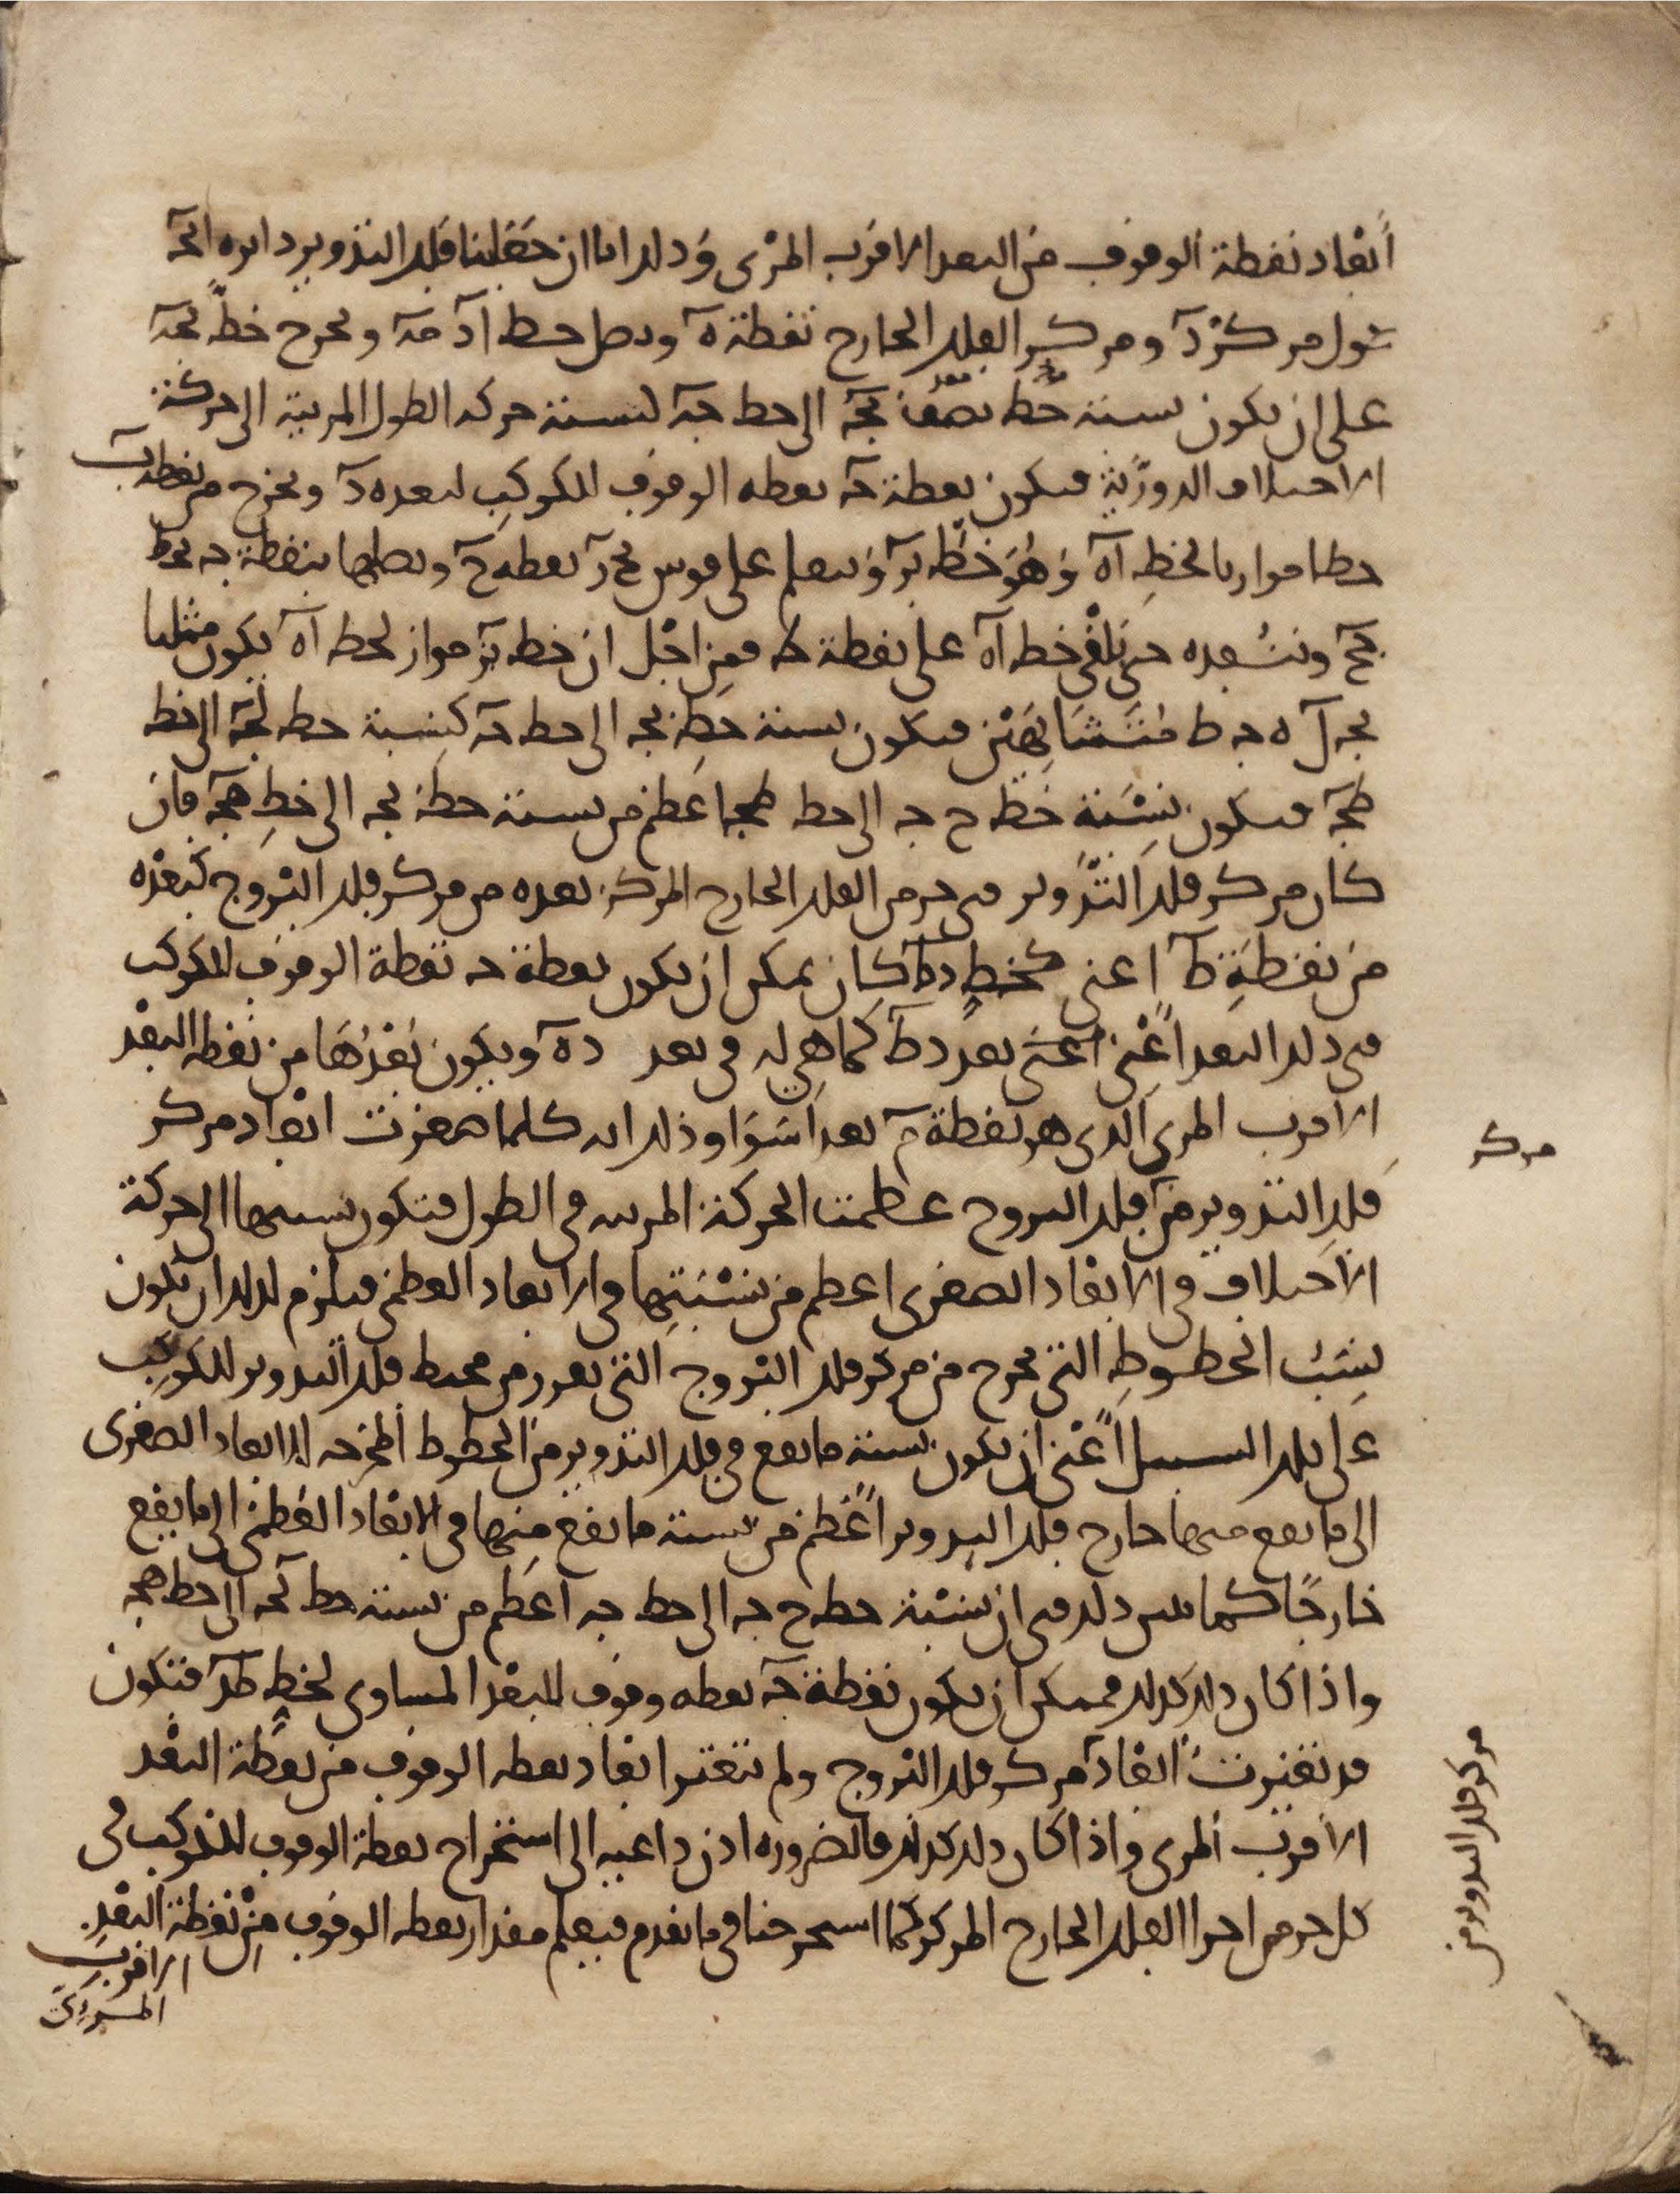 أبعاد نقطة الوقوف من البعد الاقرب المرءى وذلك انا ان جعلنا فلك التدوير دايرة ابجـ
حول مركز د ومركز الفلك الخارج نقطة ه ونصل خط ا د ه ونخرج خط
على ان يكون نسبة خط نصف بجـ الى خط جه كنسبة حركه الطول المريية الى حركة
الاختلاف الدورية فيكون نقطة حـ نقطه الوقوف للكوكب لبعد ه د ونخرج من نقطة ب
خطا موازيا لخط اه وهو خط بز ونتعلم على قوس نقطه ح ونصلها بنقطة جـ بخط
جح وننفده حتى يلقى خط اه على نقطة ط فمن اجل ان خط بز مواز لخط اه يكون مثلثا
متشابهين فيكون نسبة خط بجـ الى خط جه كنسبة خط الى خط
طجـ فيكون نسبة خط ح جـ الى خط طجـ اعظم من نسبة خط بجـ الى خط هجـ فان
كان مركز فلك التدوير في جزء من الفلك الخارج المركز بعده من مركز فلك البروج كبعده
من نقطة ط اعني كخط دط كان يمكن ان يكون نقطة حـ نقطة الوقوف للكوكب
في ذلك البعد اعني بعد دط كما هي له في بعد ده ويكون بعدها من نقطه البعد
الاقرب المرى الذي هو نقطة م بعدا سوا وذلك انه كلما صغرت ابعاد مركز
فلك التدوير من فلك البروج عظمت الحركة المريه في الطول فتكون نسبتها الى حركة
الاختلاف في الابعاد الصغرى اعظم من نسبتها في الابعاد العظمى فيلزم لذلك ان تكون
نسب الخطوط التي تخرج من مركز فلك البروج التي تفرز من محيط فلك التدوير للكوكب
على تلك السبيل اعني ان يكون نسبة ما يقع في فلك التدوير من الخطوط المخرجه للابعاد الصغرى
الى ما يقع منها خارج فلك التدوير اعظم من نسبة ما يقع منها في الابعاد العظمى الى ما يقع
خارجا كما تبين ذلك في ان نسبة خط ح جـ الى خط جـ اعظم من نسبة خط بجـ الى خط هجـ
واذا كان ذلك كذلك فممكن ان يكون نقطة جـ نقطه وقوف للبعد المساوي لخط طد فتكون
قد تغيرت ابعاد مركز فلك البروج ولم تتغير ابعاد نقطه الوقوف من نقطة البعد
الاقرب المرى واذا كان ذلك كذلك فالضروره اذن داعيه الى استخراج نقطة الوقوف للكوكب في
كل جزء من اجزا الفلك الخارج المركز كما استخرجنا في ما تقدم فيعلم مقدار نقطه الوقوف من نقطة البعد
الاقرب
المرءى
مركز
مركز فلك التدوير من